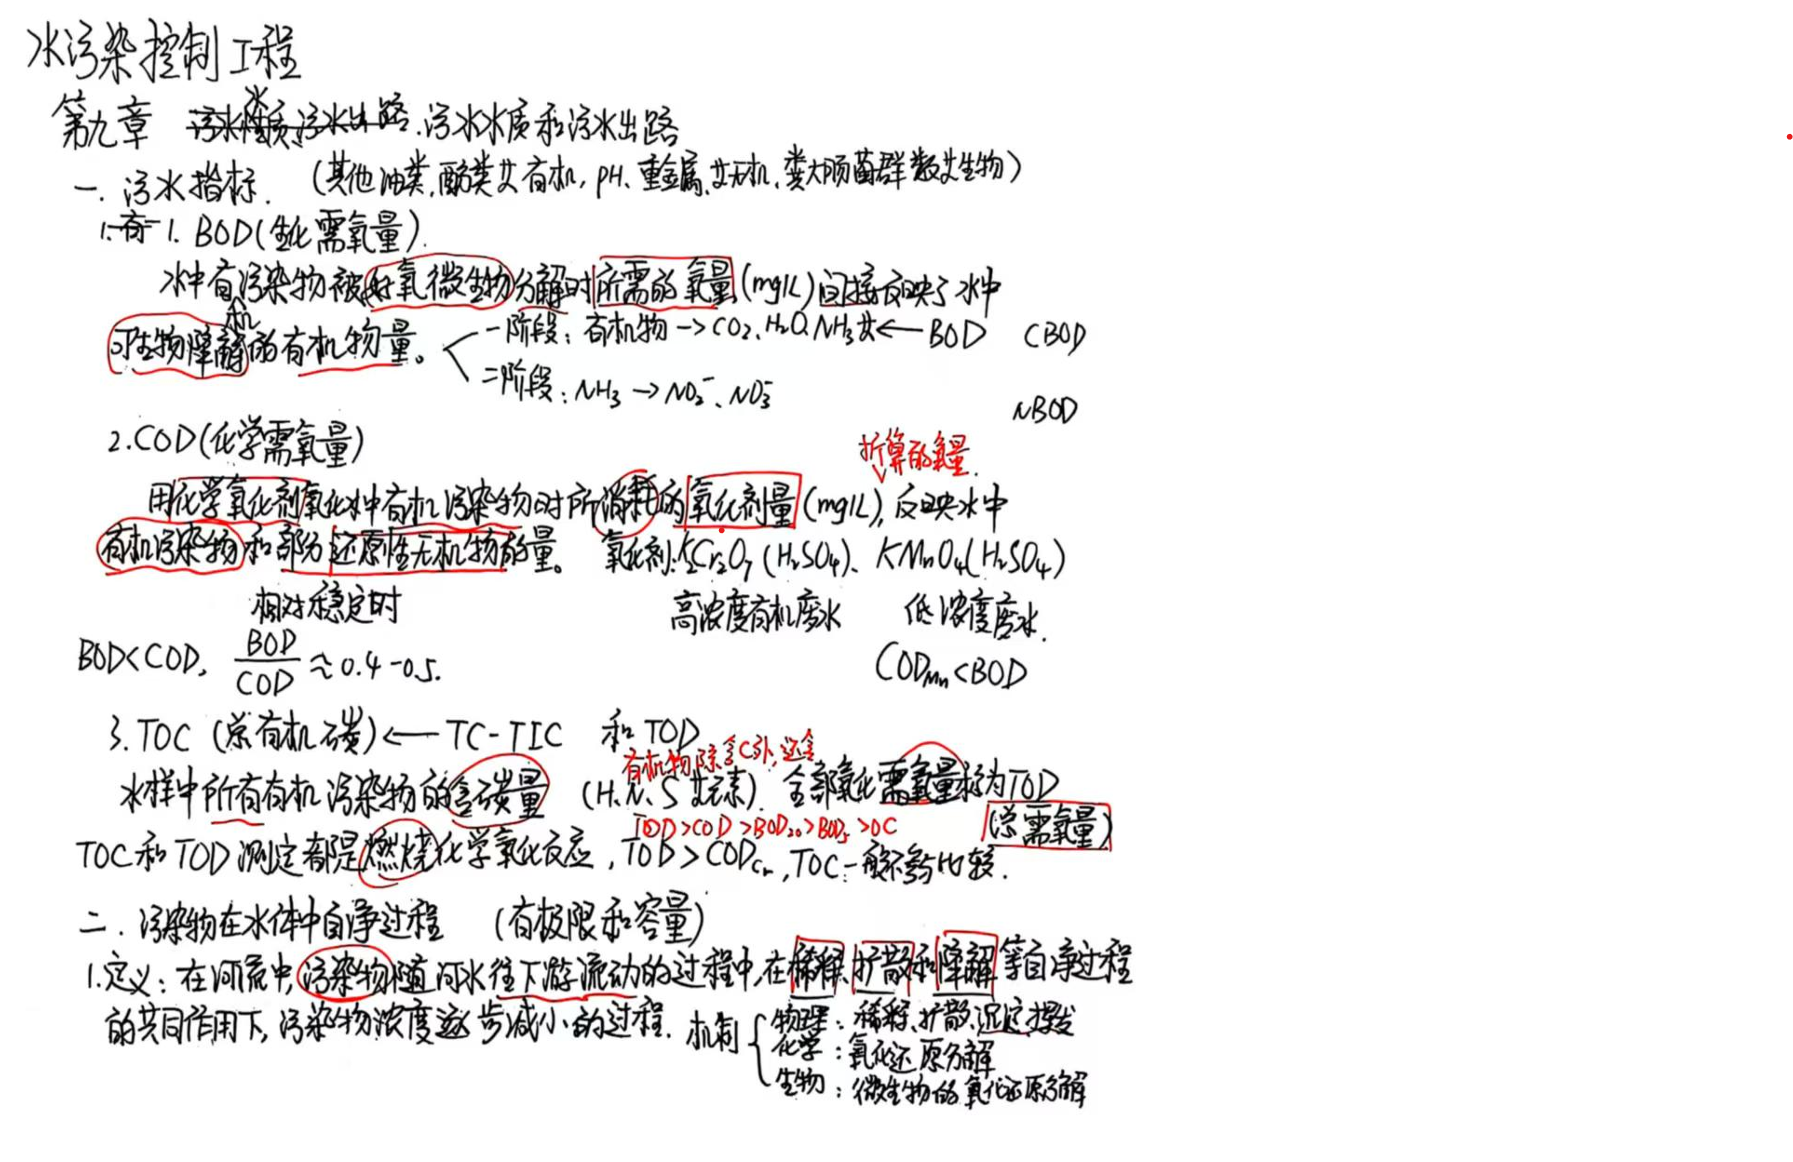 水污染控制工程
第九章 污水水质和污水出路
一. 污水指标. (其他油类,酚类等有机, pH、重金属等无机,粪大肠菌群数等生物)
1. BOD(生化需氧量).
水中有机污染物被好氧微生物分解时所需的氧量(mg/L)间接反映了水中
可生物降解的有机物量。
一阶段: 有机物→CO₂、H₂O、NH₃等← BOD CBOD
二阶段: NH₃→NO₂⁻、NO₃⁻
NBOD
2.COD(化学需氧量)
折算的氧量.
用化学氧化剂氧化水中有机污染物时所消耗的氧化剂量(mg/L), 反映水中
有机污染物和部分还原性无机物的量。 氧化剂:K₂Cr₂O₇(H₂SO₄)、KMnO₄(H₂SO₄)
相对稳定时 高浓度有机废水 低浓度废水.
BOD<COD, BOD/COD ≈0.4-0.5. COD_Mn<BOD
3.TOC (总有机碳)← TC-TIC 和TOD
有机物除含C外,还含
水样中所有有机污染物的含碳量 (H、N、S等元素). 全部氧化需氧量称为TOD
TOD>COD>BOD₂₀>BOD₅>OC (总需氧量)
TOC和TOD测定都是燃烧化学氧化反应, TOD>COD_Cr, TOC一般不参与比较.
二. 污染物在水体中自净过程 (有极限和容量)
1.定义: 在河流中,污染物随河水往下游流动的过程中,在稀释、扩散和降解等自净过程
的共同作用下,污染物浓度逐步减小的过程. 机制
物理: 稀释、扩散、沉淀、挥发
化学: 氧化还原分解
生物: 微生物的氧化还原分解